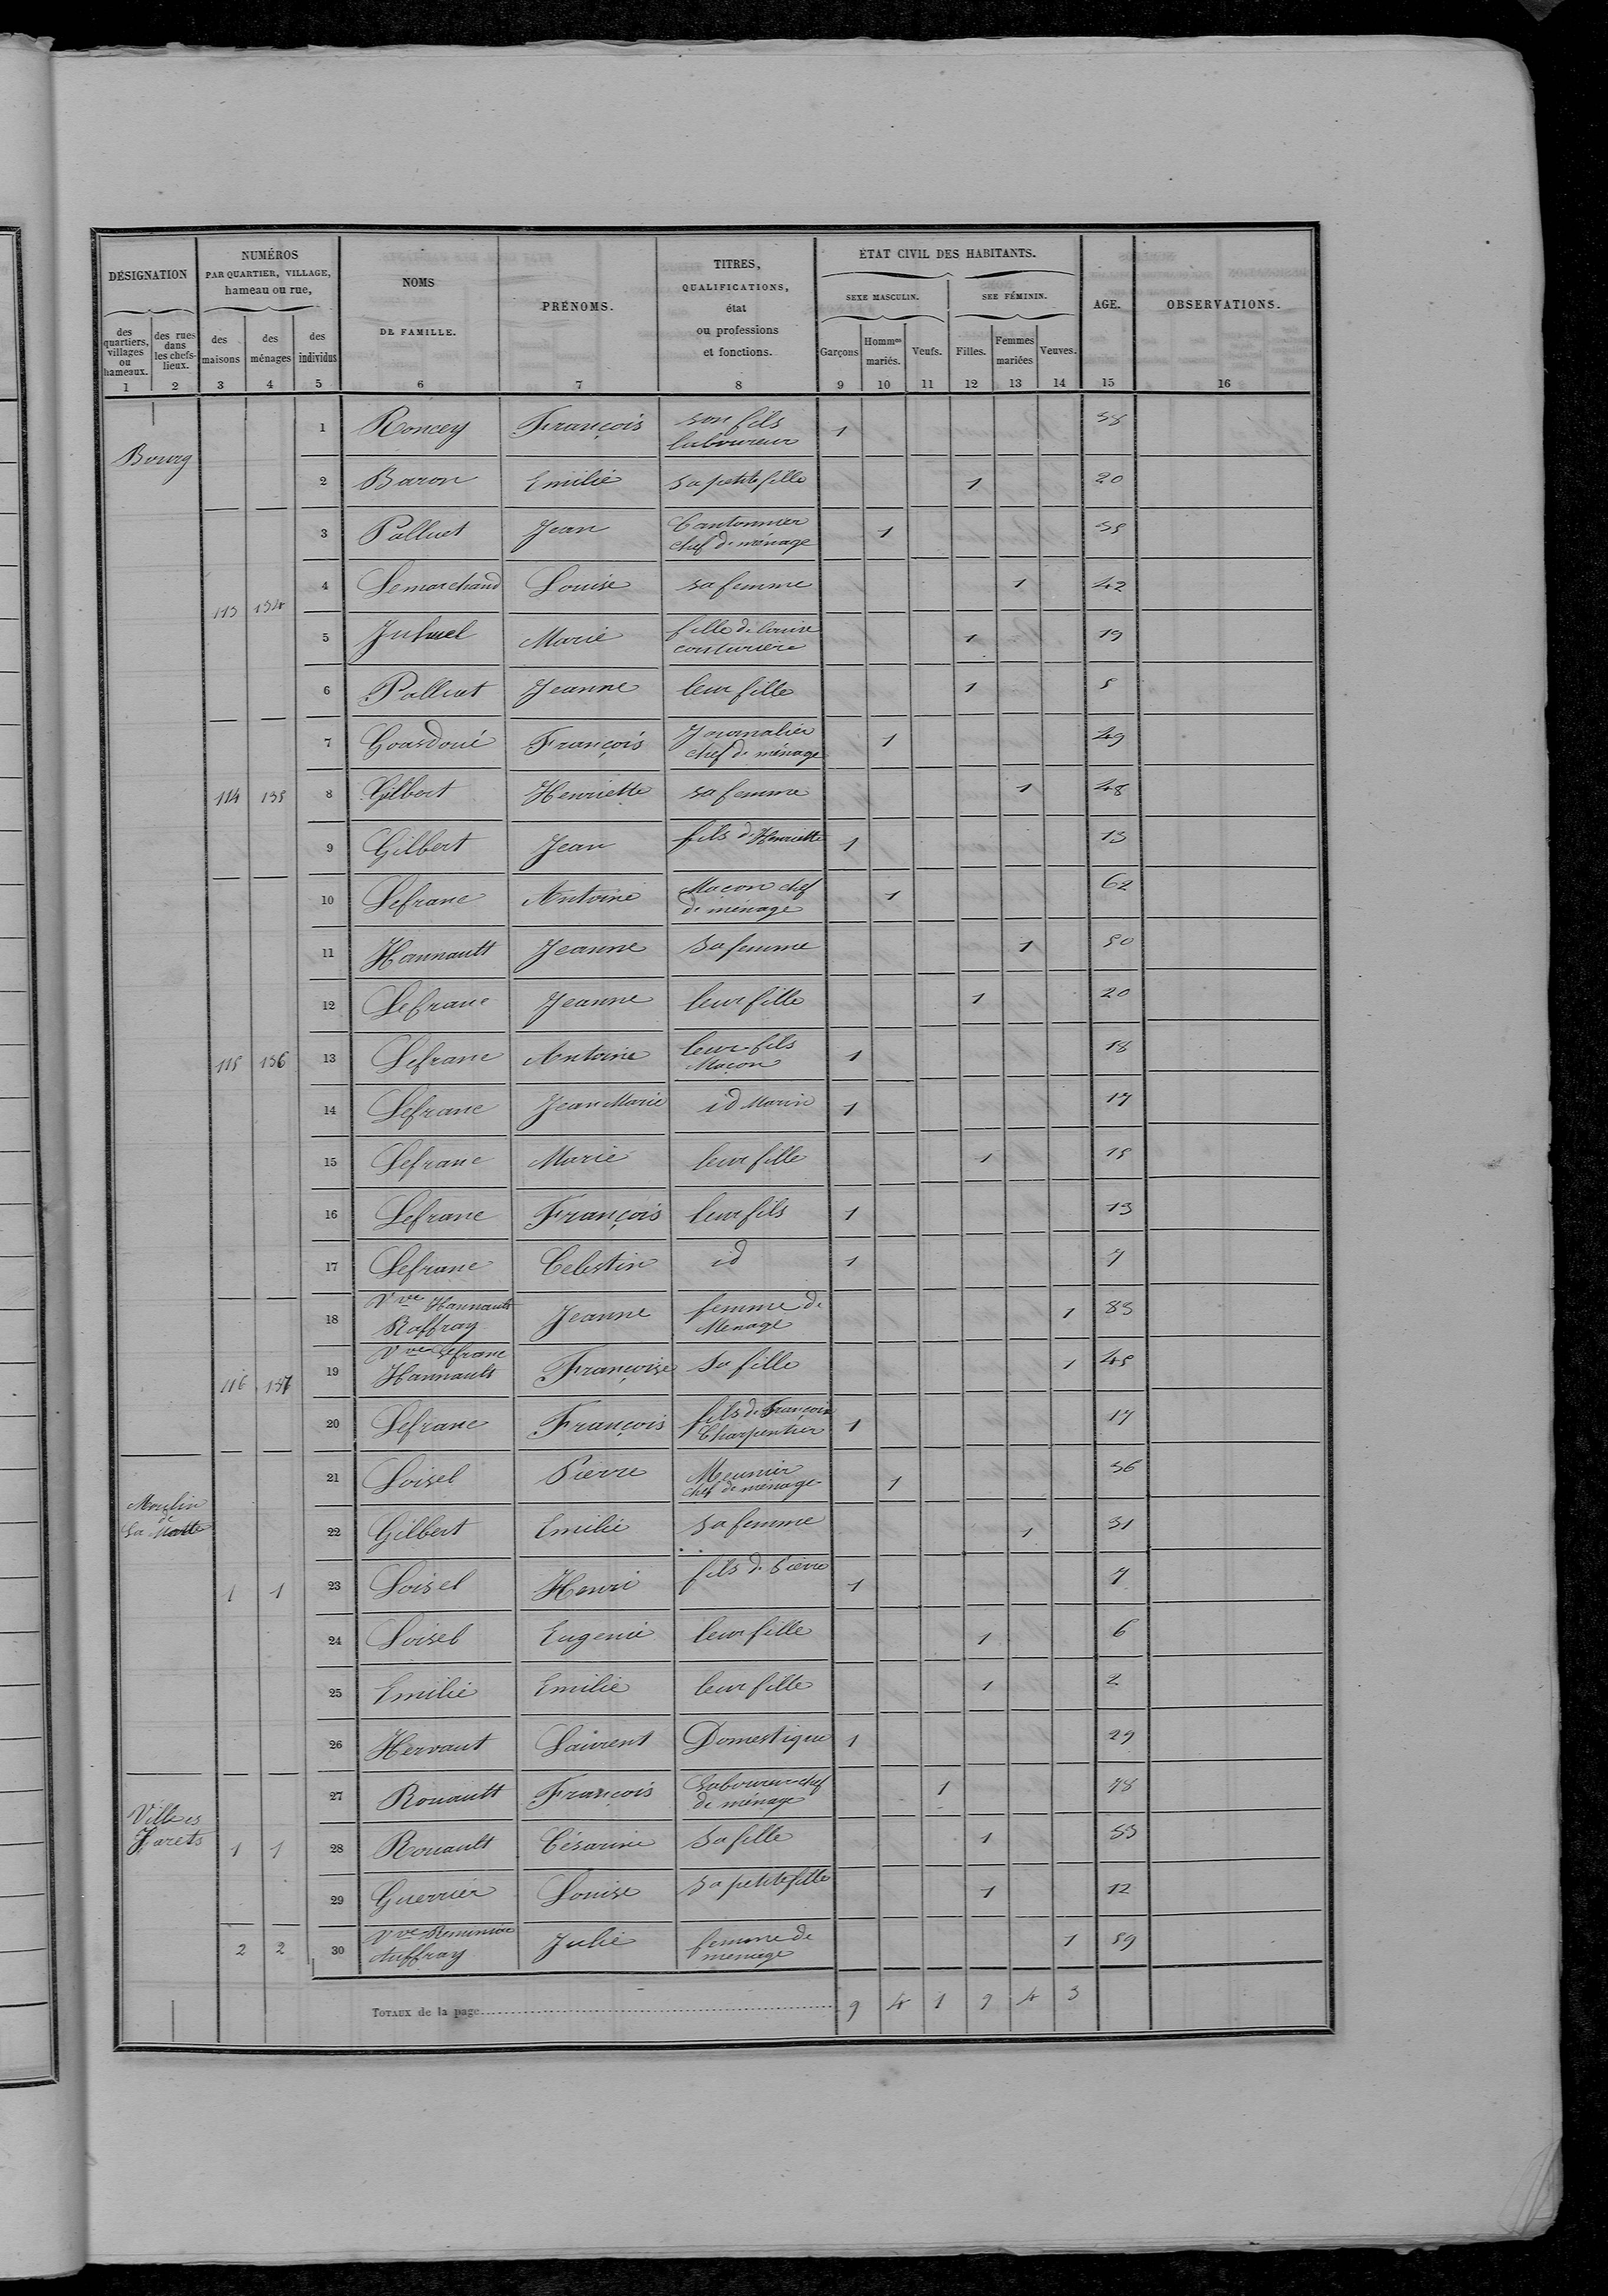 DÉSIGNATION
NUMÉROS
PAR QUARTIER, VILLAGE,
hameau ou rue,
NOMS
DE FAMILLE.
PRÉNOMS.
TITRES,
QUALIFICATIONS,
état
ou professions
et fonctions.
ÉTAT CIVIL DES HABITANTS.
SEXE MASCULIN.
SEE FÉMININ.
AGE.
OBSERVATIONS.
des
quartiers,
villages
ou
hameaux.
des rues
dans
les chefs-
lieux.
des
maisons
des
ménages
des
individus
Garçons
Hommes
mariés.
Veufs.
Filles.
Femmes
mariées
Veuves.
1 2 3 4 5 6 7 8 9 10 11 12 13 14 15 16
Bourg
1 Roncey François son fils laboureur 1 58
2 Baron Emilie sa petite fille 1 20
3 Palluet Jean Cantonnier chef de ménage 1 55
113 134
4 Lemarchand Louise sa femme 1 42
5 Juhuel Marie fille de Louise couturière 1 19
6 Palluet Jeanne leur fille 1 5
7 Gourdoué François Journalier chef de ménage 1 49
114 135 8 Gilbert Henriette sa femme 1 48
9 Gilbert Jean fils d'Henriette 1 13
10 Lefranc Antoine Maçon chef de ménage 1 62
11 Hannault Jeanne sa femme 1 50
12 Lefranc Jeanne leur fille 1 20
115 136 13 Lefranc Antoine leur fils Maçon 1 18
14 Lefranc Jean Marie id Marin 1 17
15 Lefranc Marie leur fille 1 15
16 Lefranc François leur fils 1 13
17 Lefranc Celestin id 1 7
18 Vve Hannault Raffray Jeanne femme de Menage 1 83
116 137 19 Vve Lefranc Hannault Françoise sa fille 1 45
20 Lefranc François fils de Françoise Charpentier 1 17
Moulin
de
La Motte
21 Loisel Pierre Meunier chef de ménage 1 36
22 Gilbert Emilie sa femme 1 31
1 1 23 Loisel Henri fils de Pierre 1 7
24 Loisel Eugenie leur fille 1 6
25 Emilie Emilie leur fille 1 2
26 Hervaut Laurent Domestique 1 29
Ville es
Jarets
27 Rouault François Laboureur chef de ménage 1 78
1 1 28 Rouault Césarine sa fille 1 33
29 Guerrier Louise sa petite fille 1 12
2 2 30 Vve Auffray Julie femme de menage 1 59
TOTAUX de la page 9 4 1 9 4 3